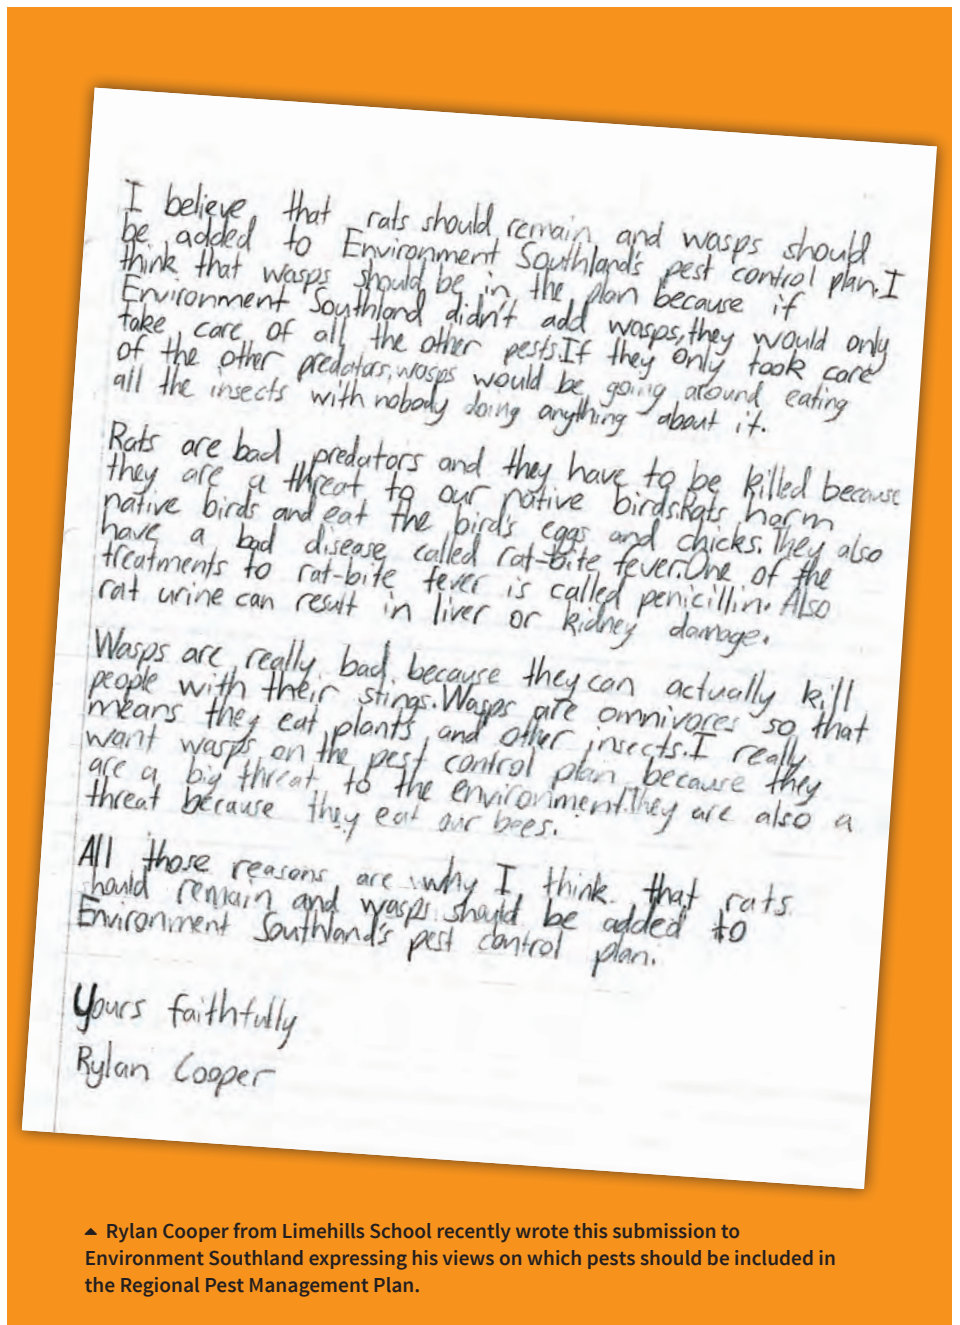 I believe that rats should remain and wasps should
be added to Environment Southland's pest control plan. I
think that wasps should be in the plan because if
Environment Southland didn't add wasps, they would only
take care of all the other pests. If they only took care
of the other predators, wasps would be going around eating
all the insects with nobody doing anything about it.
Rats are bad predators and they have to be killed because
they are a threat to our native birds. Rats harm
native birds and eat the bird's eggs and chicks. They also
have a bad disease called rat-bite fever. One of the
treatments to rat-bite fever is called penicillin. Also
rat urine can result in liver or kidney damage.
Wasps are really bad because they can actually kill
people with their stings. Wasps are omnivores so that
means they eat plants and other insects. I really
want wasps on the pest control plan because they
are a big threat to the environment. They are also a
threat because they eat our bees.
All those reasons are why I think that rats
should remain and wasps should be added to
Environment Southland's pest control plan.
Yours faithfully
Rylan Cooper
Rylan Cooper from Limehills School recently wrote this submission to
Environment Southland expressing his views on which pests should be included in
the Regional Pest Management Plan.